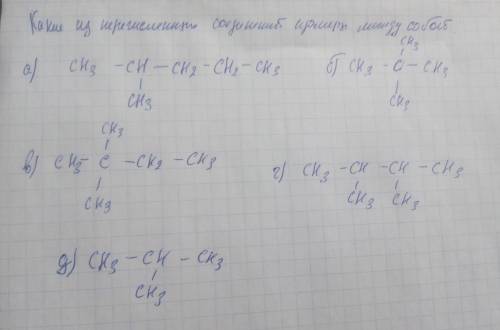 Какие из перечисленных соединений изомеры между собой
а) CH3 - CH - CH2 - CH2 - CH3
CH3
б) CH3 - C - CH3
CH3
CH3
в) CH3 - C - CH2 - CH3
CH3
CH3
г) CH3 - CH - CH - CH3
CH3 CH3
д) CH3 - CH - CH3
CH3